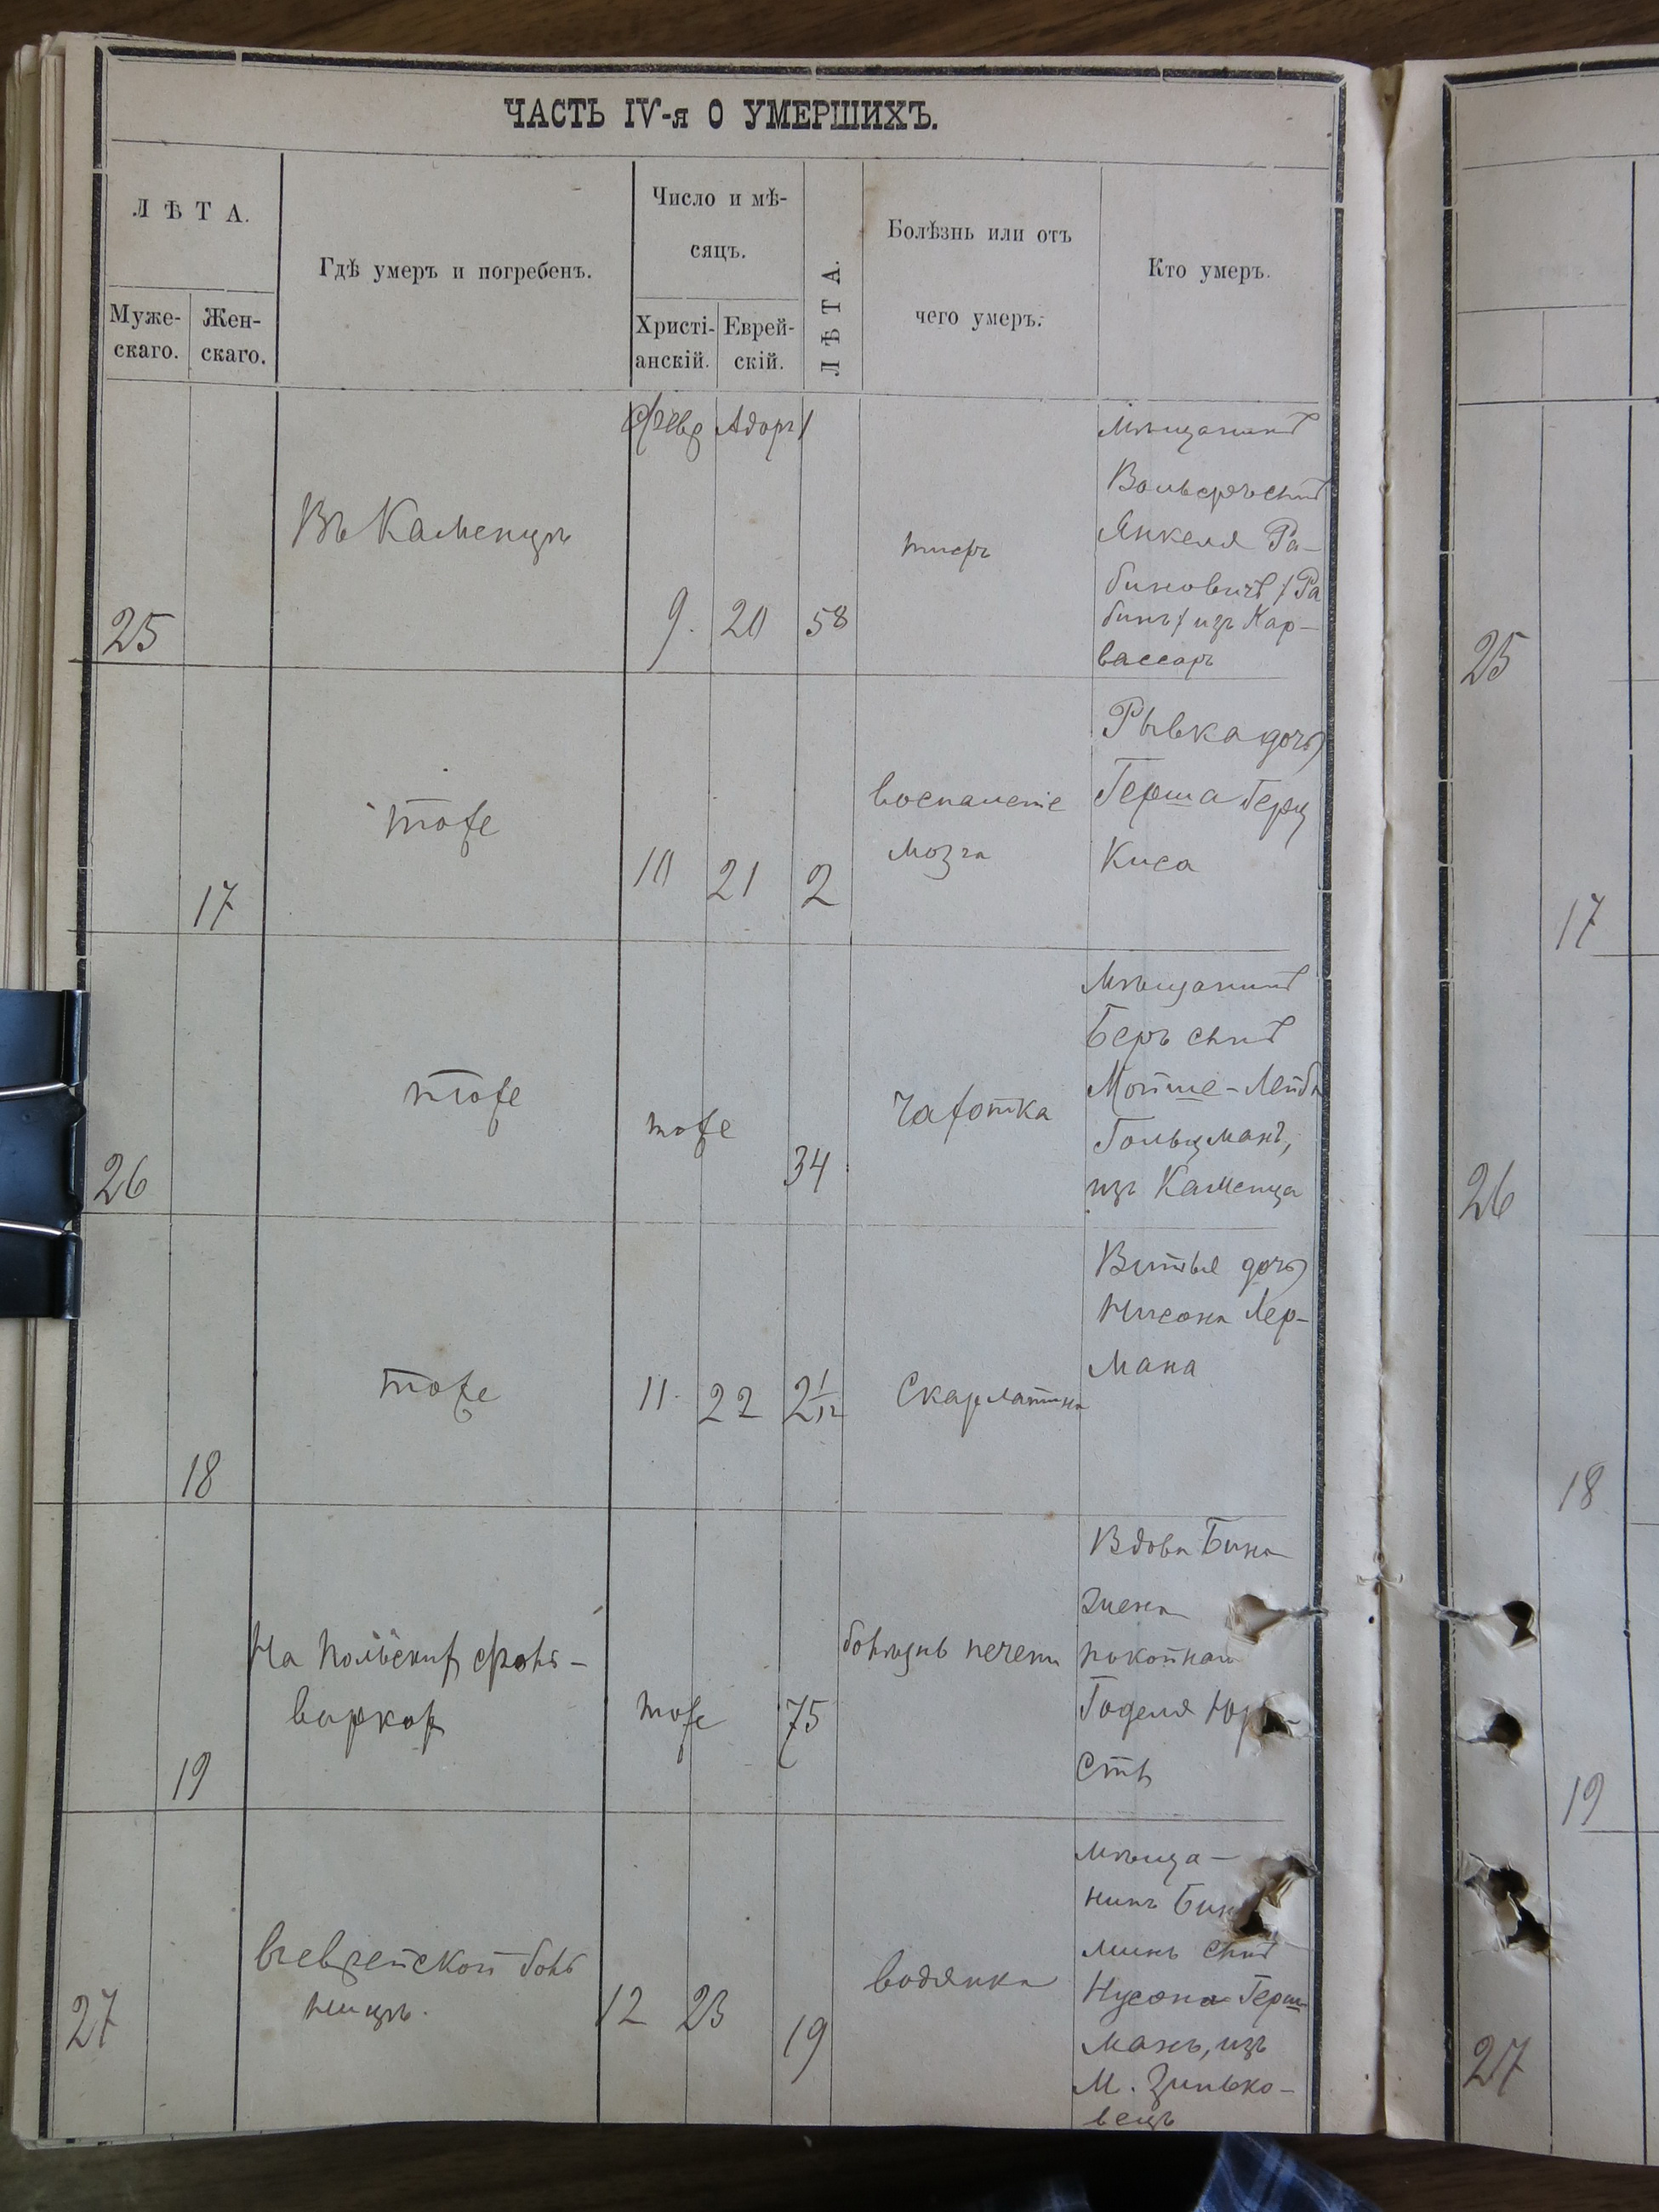 ЧАСТЬ IV-я О УМЕРШИХЪ.
ЛѢТА.
Муже-
скаго.
Жен-
скаго.
Гдѣ умеръ и погребенъ.
Число и мѣ-
сяцъ.
Христі-
анскій.
Еврей-
скій.
ЛѢТА.
Болѣзнь или отъ
чего умеръ.
Кто умеръ.
Февр Адаръ 1
25
Въ Каменцѣ
9. 20 58
тифъ
Мѣщанинъ
Вольфъ сынъ
Янкеля Ра-
биновичъ /Ра
бинъ/ изъ Кар-
вассаръ
25
17
тоже
10 21 2
воспаленіе
мозга
Рывка дочь
Герша Герц
Киса
17
26
тоже
тоже
34
Чахотка
Мѣщанинъ
Беръ сынъ
Мойше-Лейба
Гольцманъ,
изъ Каменца
26
18
тоже
11. 22 2 1/12
Скарлатина
Витье дочь
Нисона Лер-
мана
18
19
На Польскихъ фоль-
варкахъ
тоже
75
болѣзнь печени
Вдова Бина
жена
покойнаго
Годеля
стъ
19
27
въ еврейской боль
ницѣ.
12 23
19
водянка
мѣща-
нинъ
минъ сынъ
Нусона Герш
манъ, изъ
м. Зинько-
вецъ
27